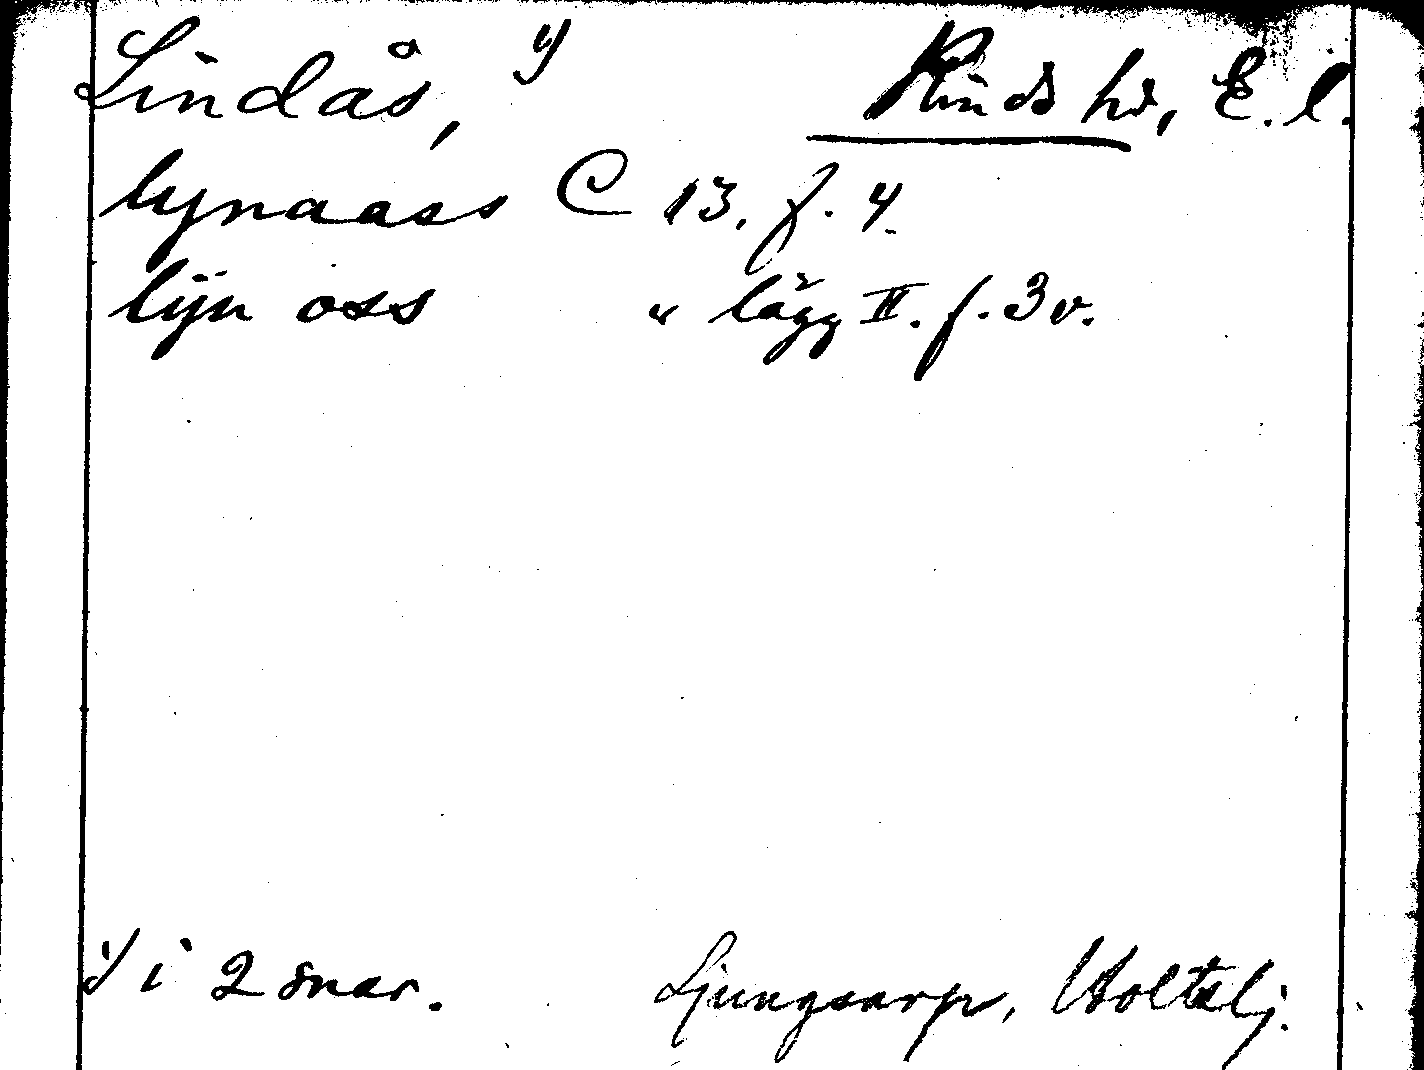 Lindås, y Kinds hd, E. l.
lynaass C 13. f. 4.
lijn oss " lägg II. f. 3 v.
y i 2 snar. Ljungsarp, Holtslj.